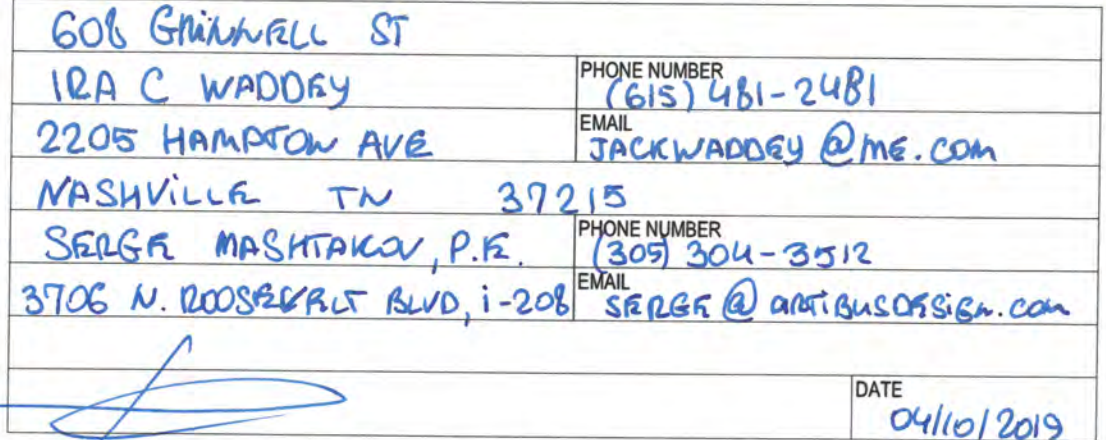 608 GRINNELL ST
IRA C WADDEY PHONE NUMBER (615) 481-2481
2205 HAMPTON AVE EMAIL JACKWADDEY@ME.COM
NASHVILLE TN 37215
SERGE MASHTAKOV, P.E. PHONE NUMBER (305) 304-3512
3706 N. ROOSEVELT BLVD, i-208 EMAIL SERGE@ARTIBUSDESIGN.COM
DATE 04/10/2019